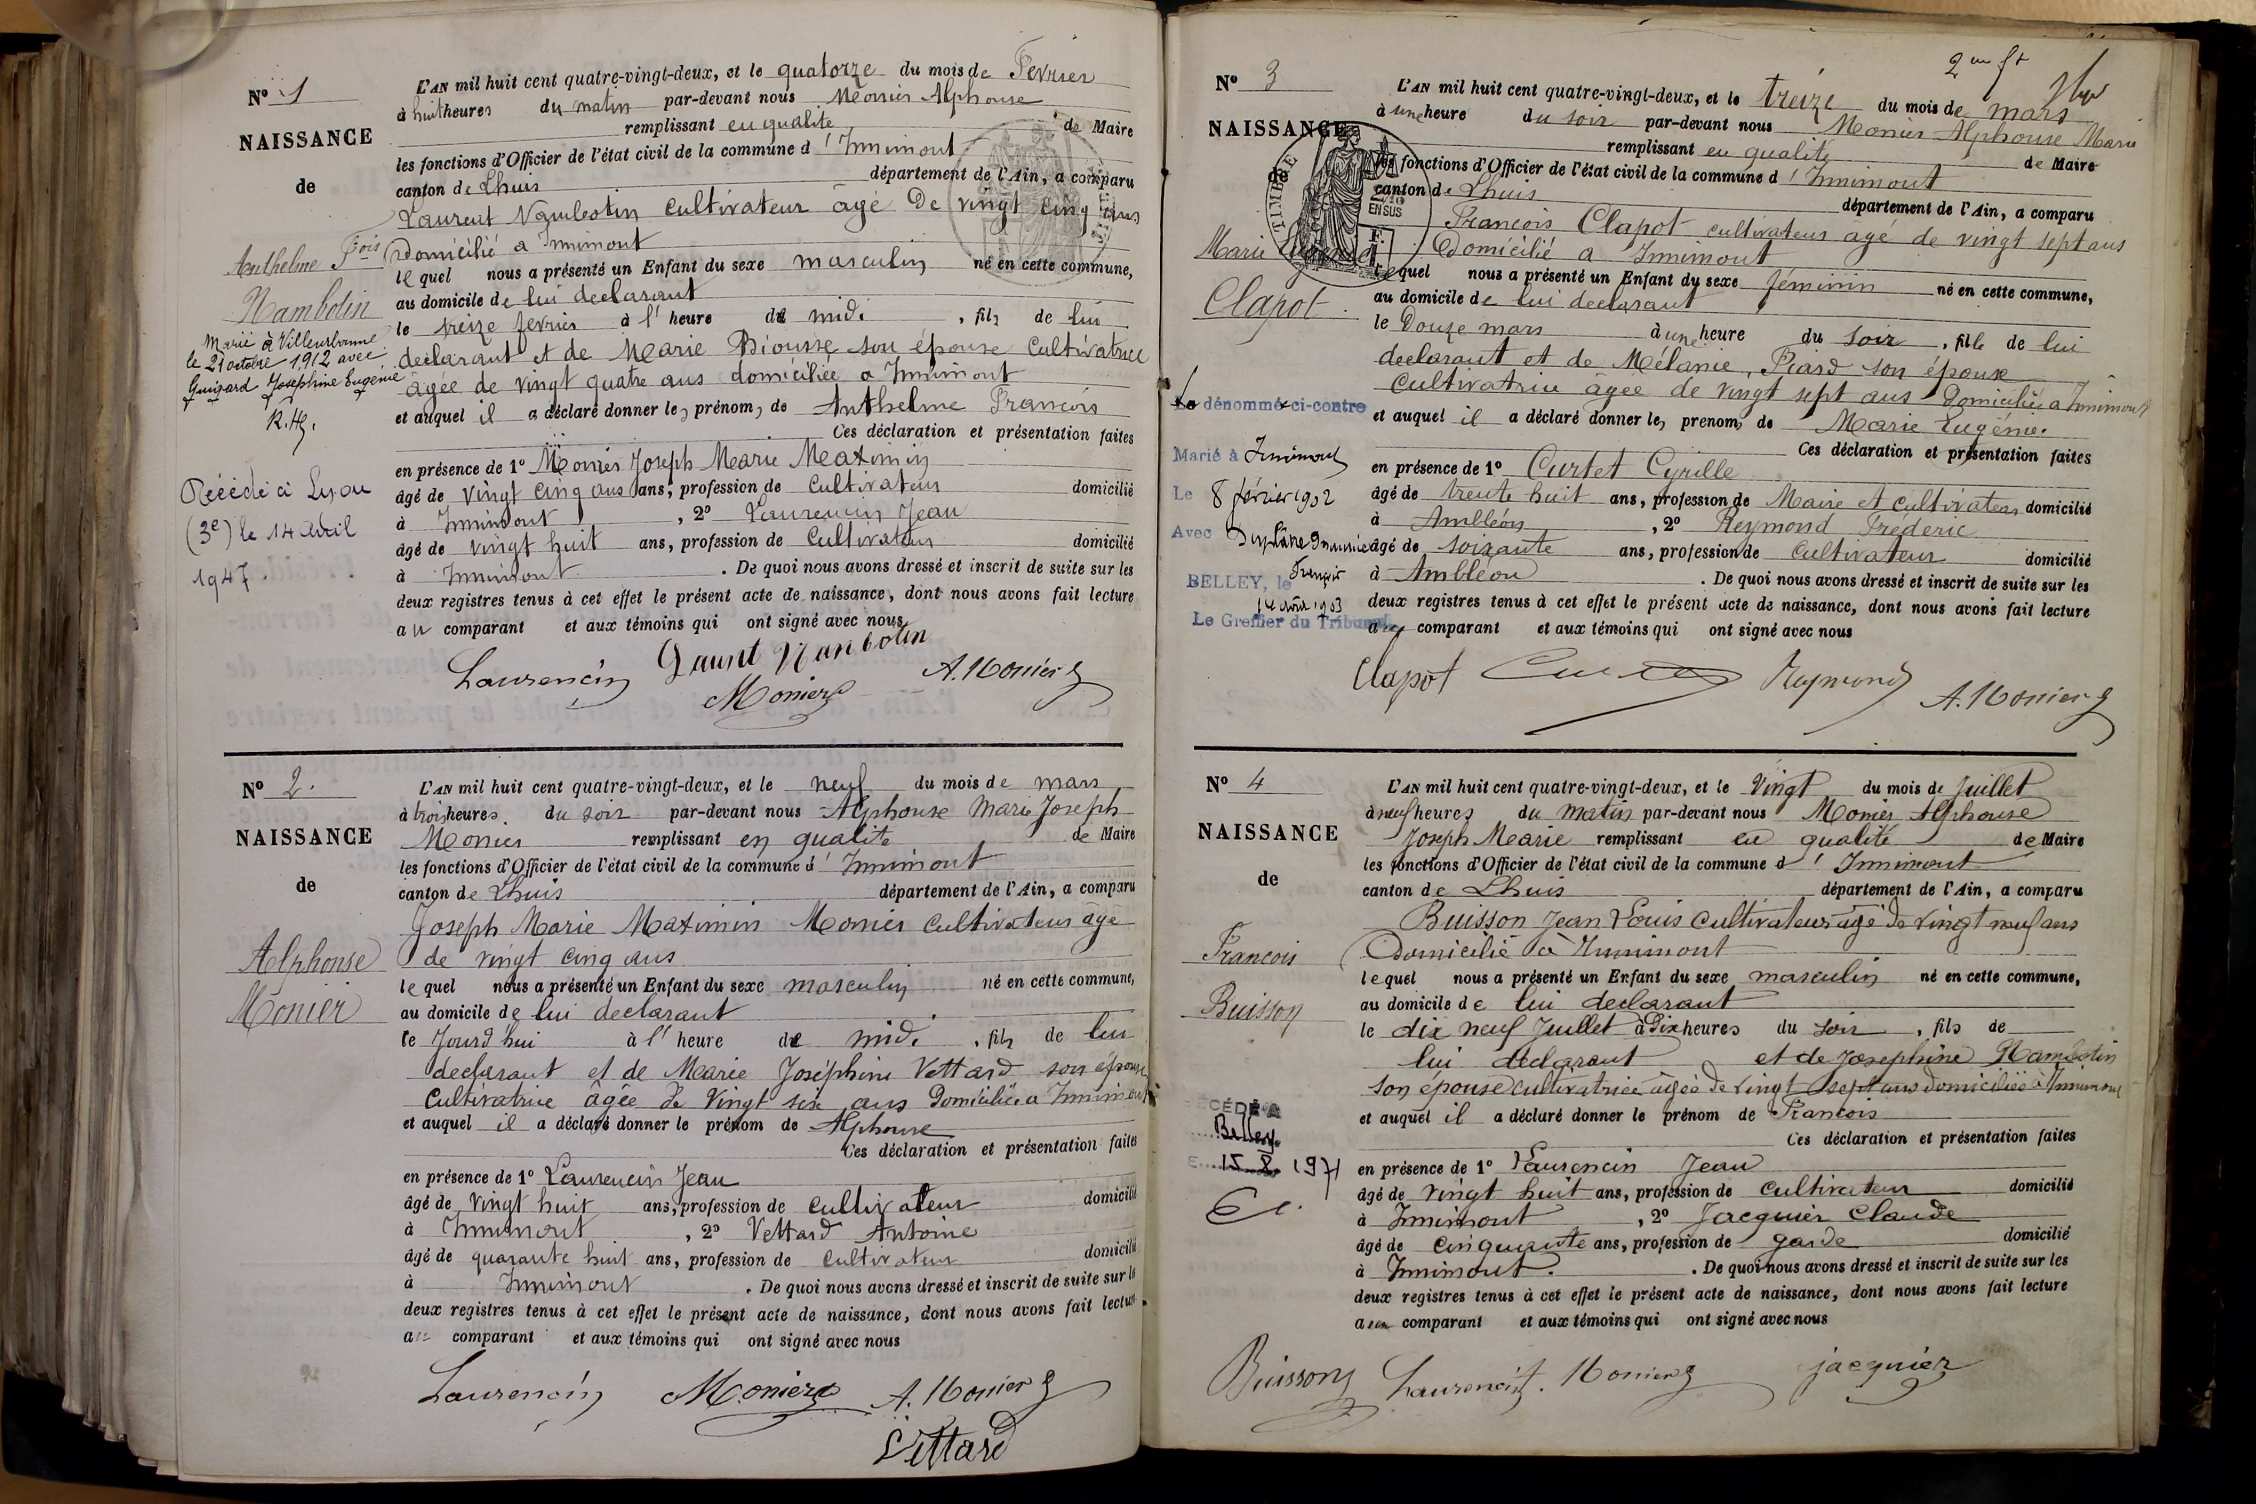 N° 1
NAISSANCE
de
Anthelme Fois
Nambotin
Marié à Villeurbanne
le 21 octobre 1912 avec
Guigard Joséphine Eugénie
Décédé à Lyon
(3e) le 14 avril
1947.
L'AN mil huit cent quatre-vingt-deux, et le quatorze du mois de Fevrier
à huit heures du matin par-devant nous Monier Alphonse
remplissant en qualité de Maire
les fonctions d'Officier de l'état civil de la commune d'Innimont
canton de Lhuis département de l'Ain, a comparu
Laurent Nambotin cultivateur âgé De vingt cinq ans
Domicilié a Innimont
lequel nous a présenté un Enfant du sexe masculin né en cette commune,
au domicile de lui declarant
le treize fevrier à l'heure de midi, fils de lui
declarant et de Marie Diousse son épouse Cultivatrice
âgée de vingt quatre ans domiciliée a Innimont
et auquel il a déclaré donner les prénoms de Anthelme François
Ces déclaration et présentation faites
en présence de 1° Monier Joseph Marie Maximin
âgé de vingt cinq ans ans, profession de Cultivateur domicilié
à Innimont, 2° Laurencin Jean
âgé de vingt huit ans, profession de Cultivateur domicilié
à Innimont. De quoi nous avons dressé et inscrit de suite sur les
deux registres tenus à cet effet le présent acte de naissance, dont nous avons fait lecture
au comparant et aux témoins qui ont signé avec nous
Laurencin Laurent Nambotin A. Monier
Monier
N° 2.
NAISSANCE
de
Alphonse
Monier
L'AN mil huit cent quatre-vingt-deux, et le neuf du mois de mars
à trois heures du soir par-devant nous Alphonse Marie Joseph
Monier remplissant en qualité de Maire
les fonctions d'Officier de l'état civil de la commune d'Innimont
canton de Lhuis département de l'Ain, a comparu
Joseph Marie Maximin Monier cultivateur âgé
de vingt cinq ans
lequel nous a présenté un Enfant du sexe masculin né en cette commune,
au domicile de lui declarant
le Jourd'hui à l'heure de midi, fils de lui
declarant et de Marie Joséphine Vettard son épouse
Cultivatrice âgée de vingt six ans Domiciliée a Innimont
et auquel il a déclaré donner le prénom de Alphonse
Ces déclaration et présentation faites
en présence de 1° Laurencin Jean
âgé de vingt huit ans, profession de cultivateur domicilié
à Innimont, 2° Vettard Antoine
âgé de quarante huit ans, profession de cultivateur domicilié
à Innimont. De quoi nous avons dressé et inscrit de suite sur les
deux registres tenus à cet effet le présent acte de naissance, dont nous avons fait lecture
au comparant et aux témoins qui ont signé avec nous
Laurencin Monier A. Monier
Vettard
N° 3
NAISSANCE
de
Marie
Clapot
Le dénommé ci-contre
Marié à Innimont
Le 8 février 1902
Avec
François
BELLEY, le
14 août 1903
Le Greffier du Tribunal,
TIMBRE
EN SUS
L'AN mil huit cent quatre-vingt-deux, et le treize du mois de mars
à une heure du soir par-devant nous Monier Alphonse Marie
remplissant en qualité de Maire
les fonctions d'Officier de l'état civil de la commune d'Innimont
canton de Lhuis département de l'Ain, a comparu
François Clapot cultivateur agé de vingt sept ans
Domicilié a Innimont
lequel nous a présenté un Enfant du sexe féminin né en cette commune,
au domicile de lui declarant
le Douze mars à une heure du soir, fille de lui
declarant et de Mélanie Piard son épouse
Cultivatrice âgée de vingt sept ans Domiciliée a Innimont
et auquel il a déclaré donner les prenoms de Marie Eugénie.
Ces déclaration et présentation faites
en présence de 1° Curtet Cyrille
âgé de trente huit ans, profession de Maire et cultivateur domicilié
à Ambléon, 2° Reymond Frédéric
âgé de soixante ans, profession de cultivateur domicilié
à Ambléon. De quoi nous avons dressé et inscrit de suite sur les
deux registres tenus à cet effet le présent acte de naissance, dont nous avons fait lecture
au comparant et aux témoins qui ont signé avec nous
Clapot Curtet Reymond A. Monier
N° 4
NAISSANCE
de
François
Buisson
DÉCÉDÉ A
Belley
15 8 1971
L'AN mil huit cent quatre-vingt-deux, et le Vingt du mois de Juillet
à neuf heures du matin par-devant nous Monier Alphonse
Joseph Marie remplissant en qualité de Maire
les fonctions d'Officier de l'état civil de la commune d'Innimont
canton de Lhuis département de l'Ain, a comparu
Buisson Jean Louis cultivateur âgé de vingt neuf ans
Domicilié à Innimont
lequel nous a présenté un Enfant du sexe masculin né en cette commune,
au domicile de lui declarant
le dix neuf Juillet à Dix heures du soir, fils de
lui declarant et de Josephine Nambotin
son épouse cultivatrice âgée de vingt sept ans domiciliée à Innimont
et auquel il a déclaré donner le prénom de François
Ces déclaration et présentation faites
en présence de 1° Laurencin Jean
âgé de vingt huit ans, profession de cultivateur domicilié
à Innimont, 2° Jacquier Claude
âgé de cinquante ans, profession de garde domicilié
à Innimont. De quoi nous avons dressé et inscrit de suite sur les
deux registres tenus à cet effet le présent acte de naissance, dont nous avons fait lecture
au comparant et aux témoins qui ont signé avec nous
Buisson Laurencin. Monier jacquier